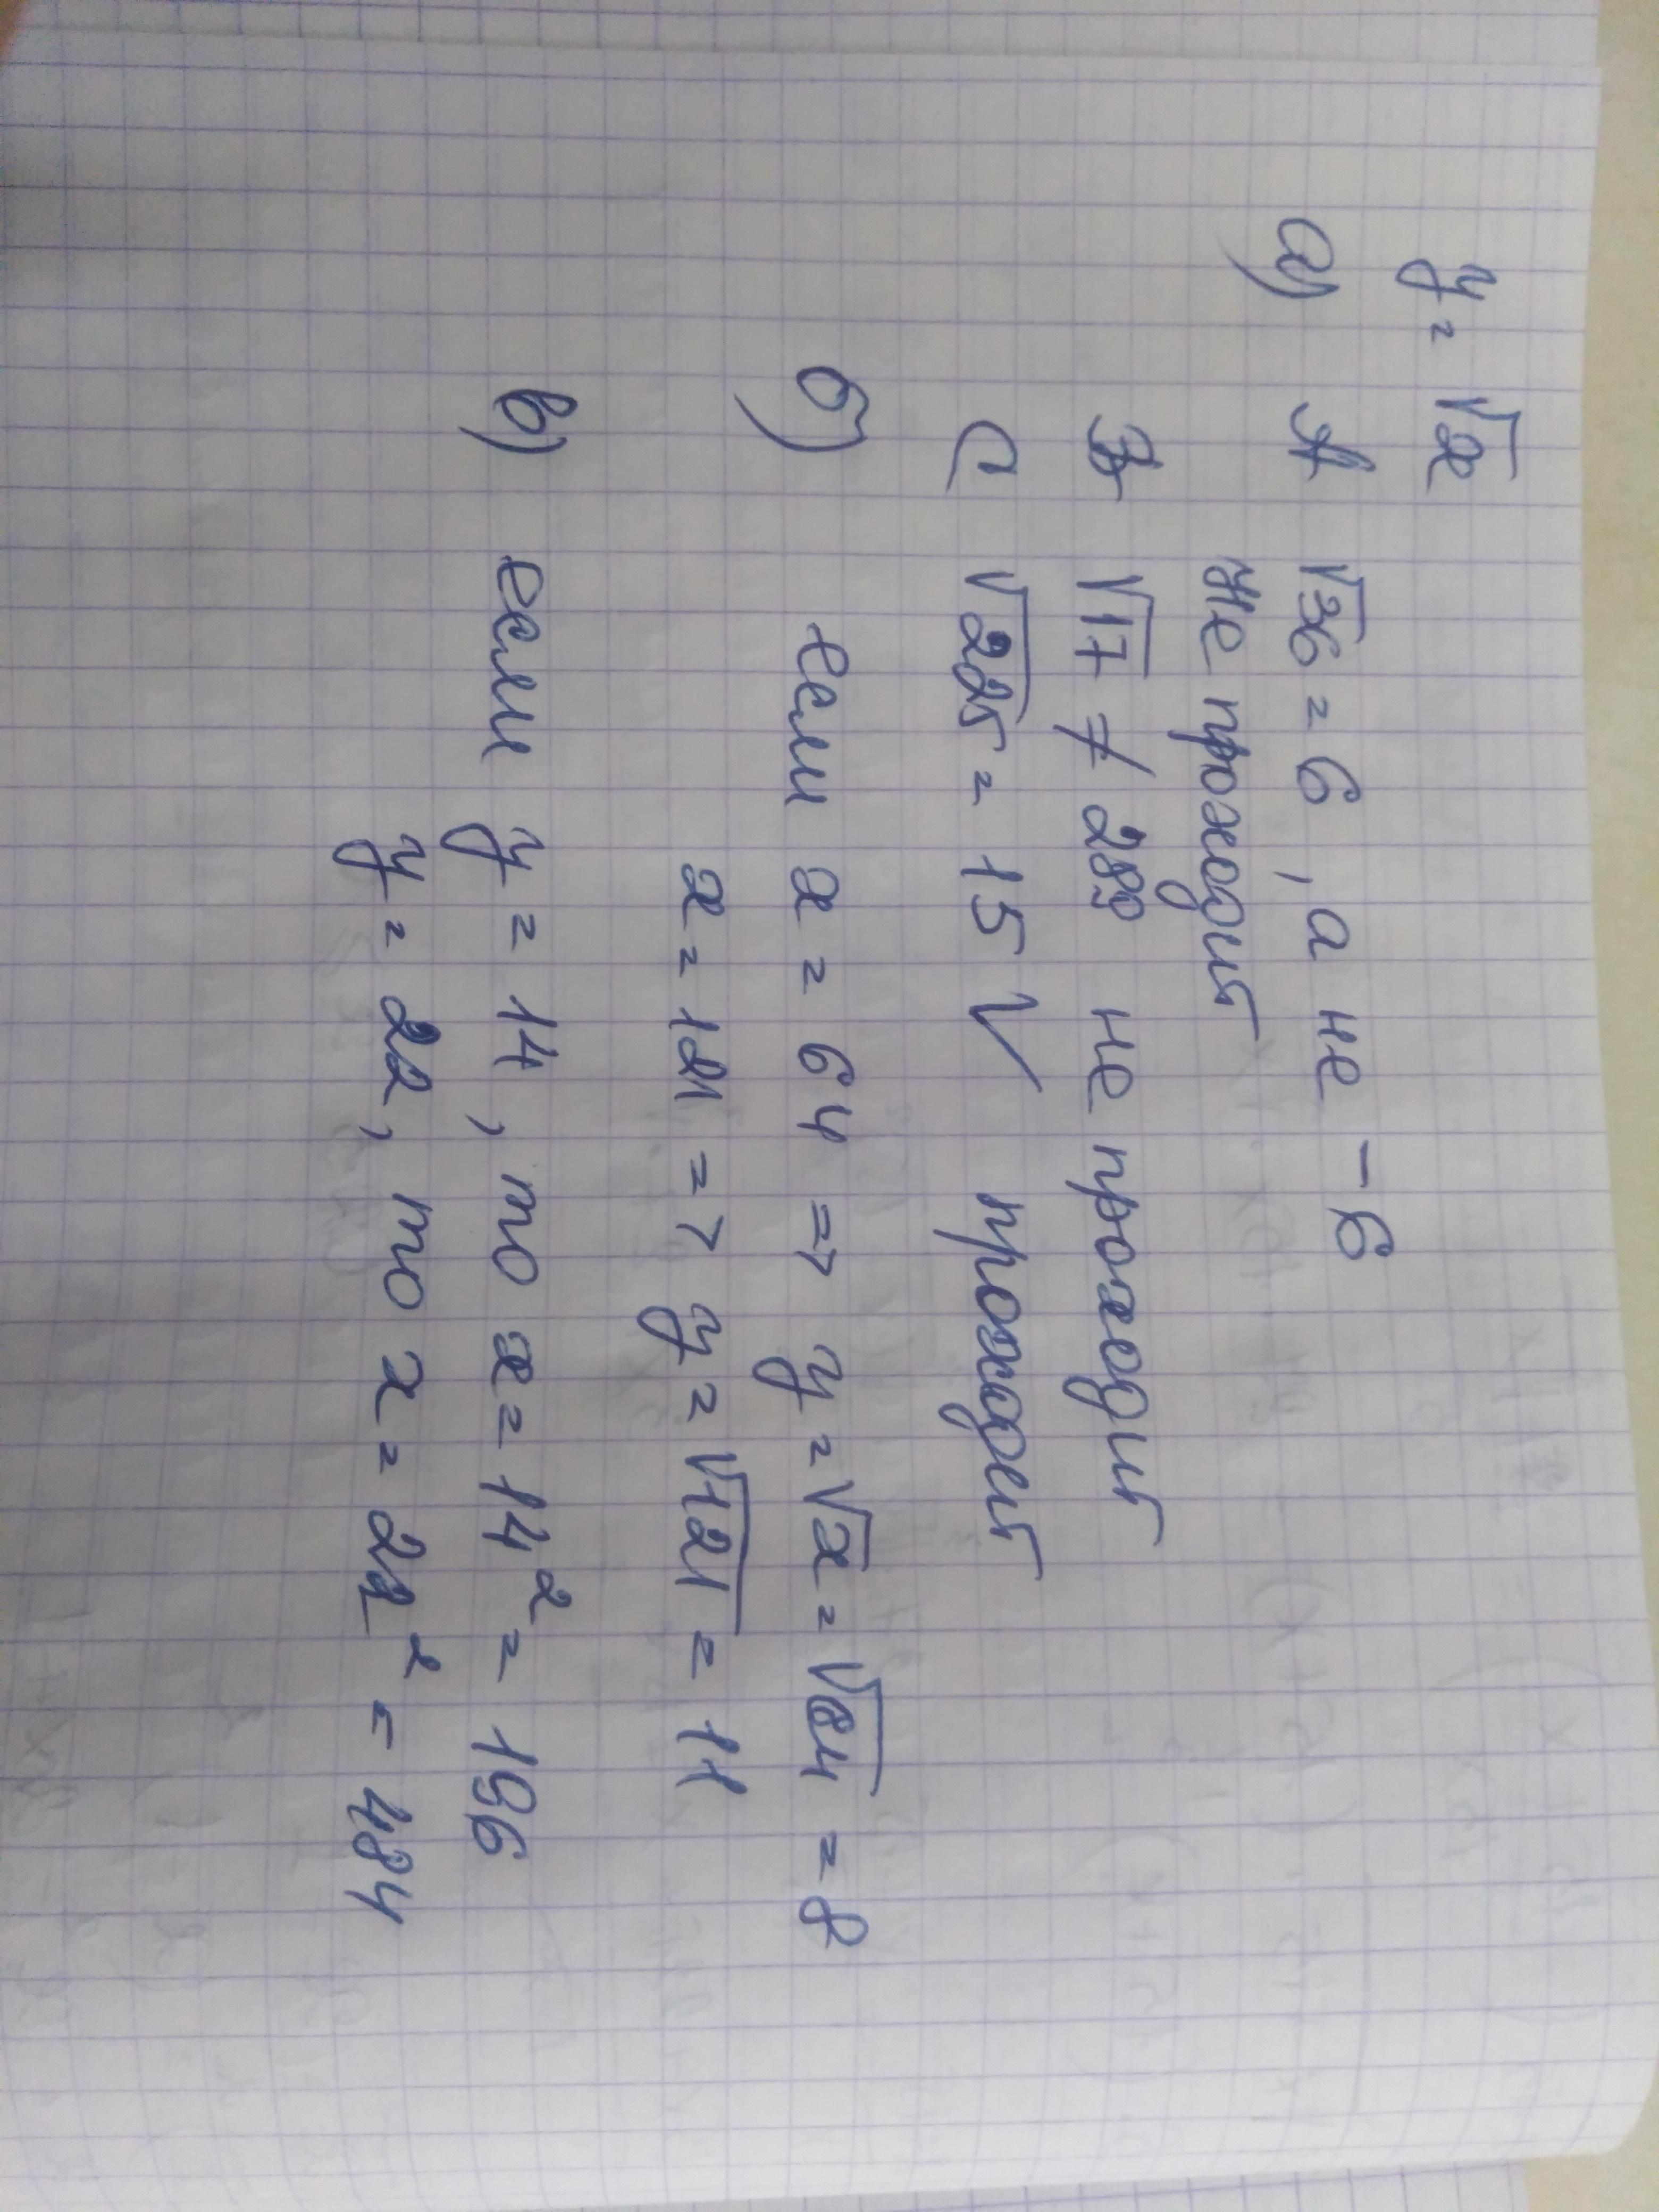 y = √x
а) A √36 = 6, а не -6
не проходит
B √17 ≠ 289 не проходит
C √225 = 15 V проходит
б) если x = 64 => y = √x = √64 = 8
x = 121 => y = √121 = 11
в) если y = 14, то x = 14² = 196
y = 22, то x = 22² = 484